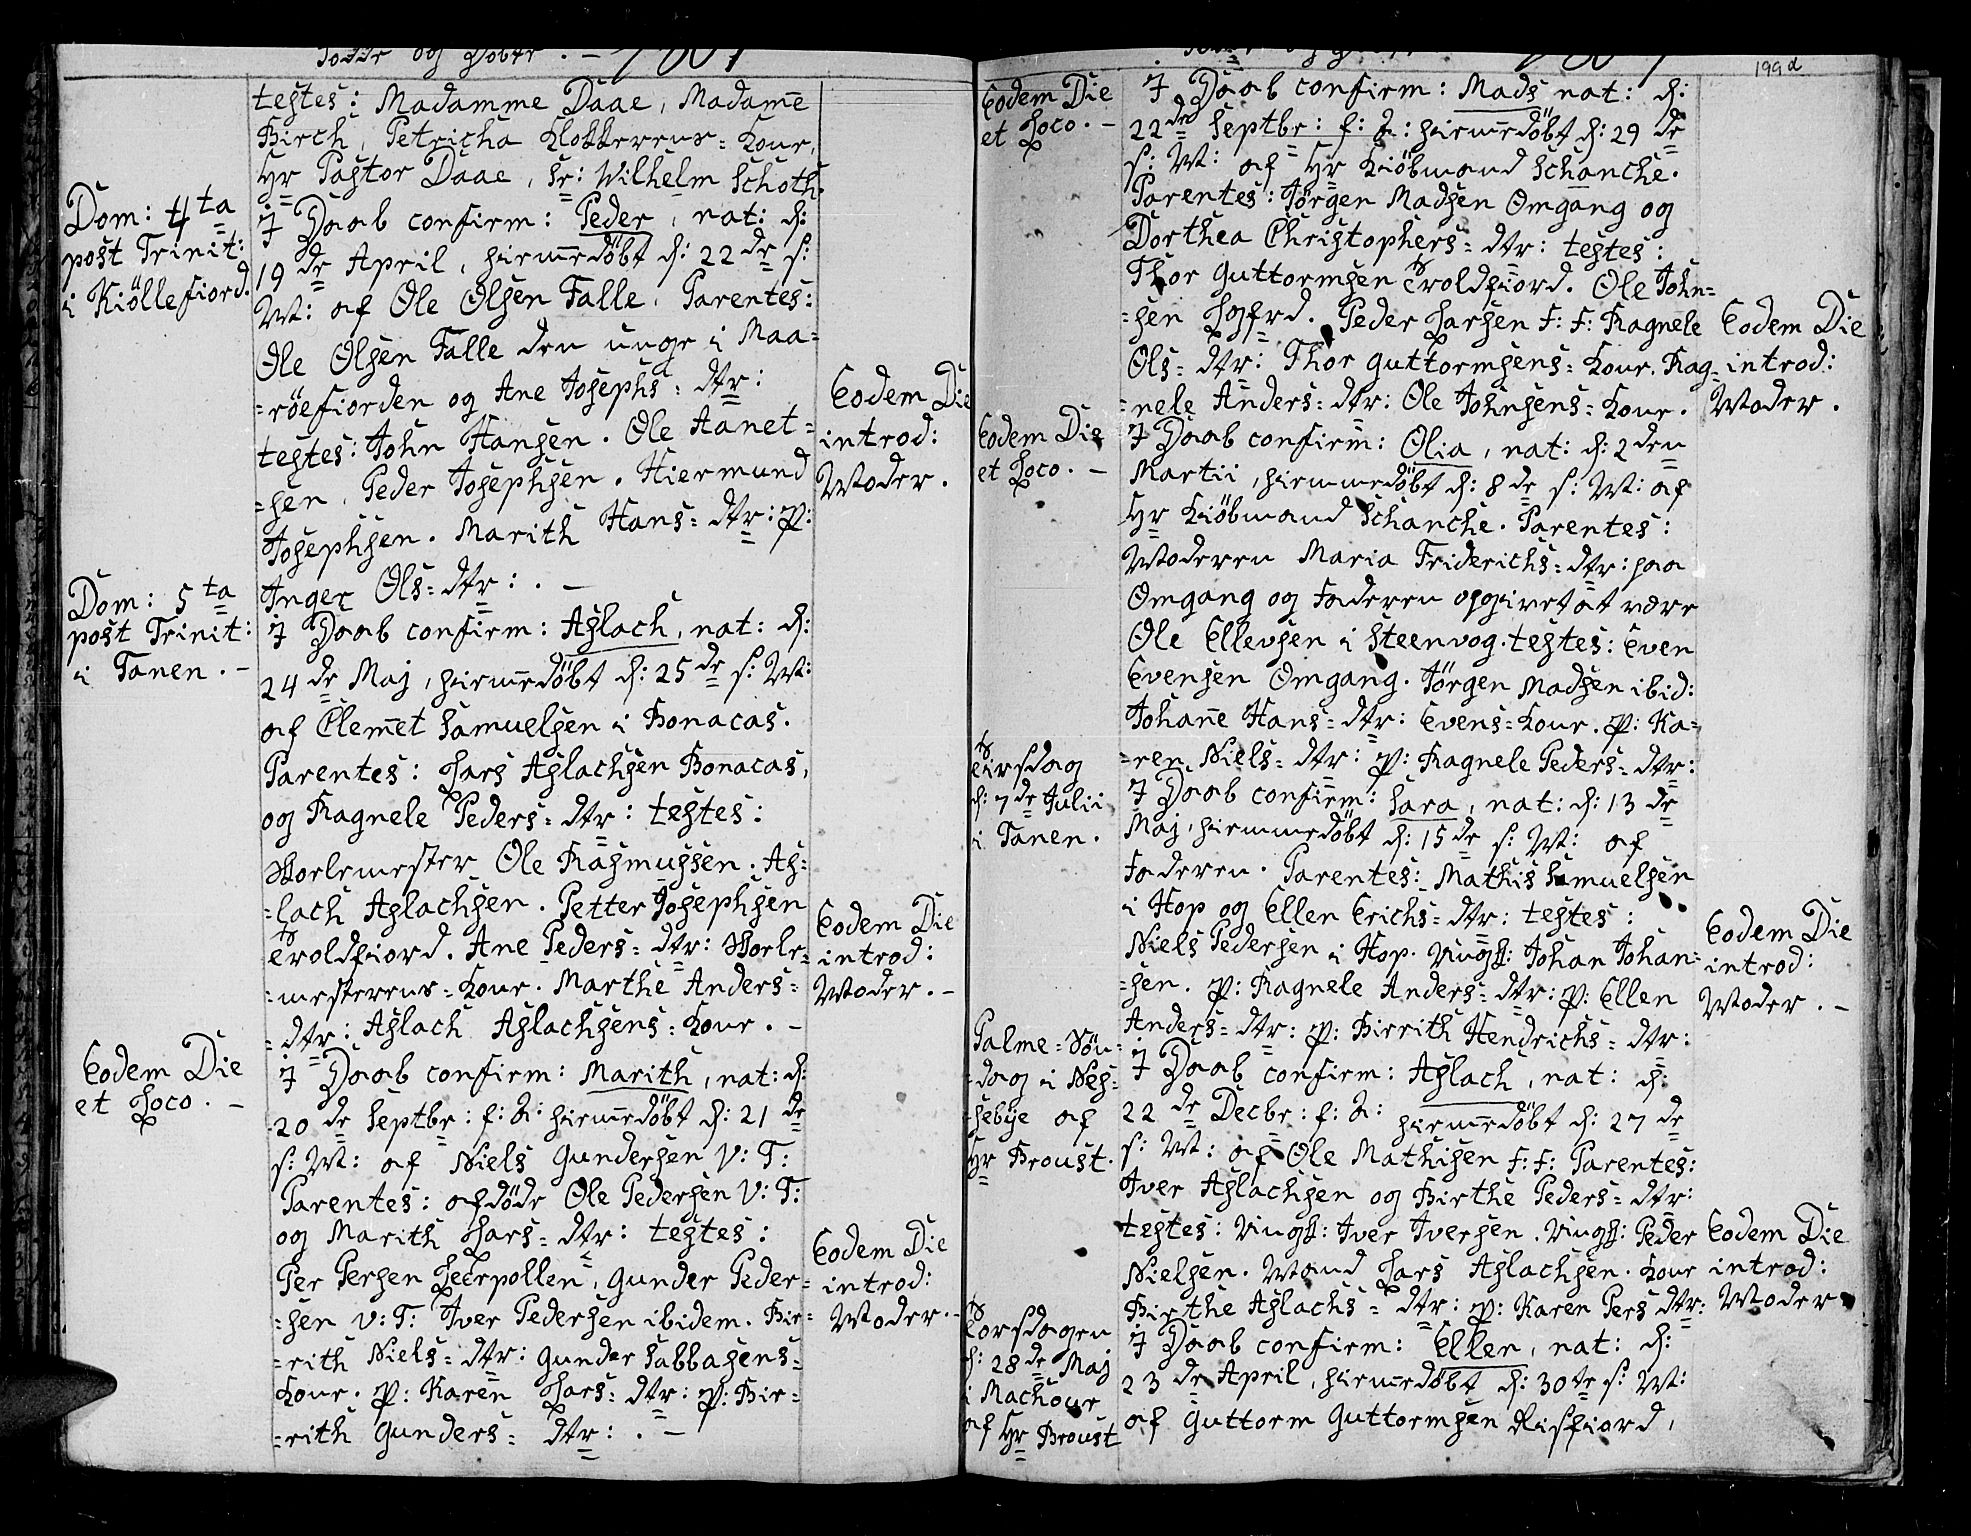 Födde og Döbte. – 1807
testes: Madamme Daae, Madam̄e
Birch, Petricha Klokkerens=Kone,
Hr Pastor Daae, Sr: Wilhelm Schoth.
Dom: 4ta
post Trinit:
i Kiöllefiord.
I Daab confirm: Peder, nat: d:
19de April, hiem̄edöbt d: 22de s:
M: af Ole Olsen Falle. Parentes:
Ole Olsen Falle den unge i Maa=
=röefiorden og Ane Josephs=dtr:
testes: John Hansen. Ole Aanet=
=sen, Peder Josephsen. Hiermund
Josephsen. Marith Hans=dtr: p:
Inger Ols=dtr: . –
Eodem Die
introd:
Moder.
Dom: 5ta
post Trinit:
i Tanen. –
I Daab confirm: Aslach, nat: d:
24de Maj, hiem̄edöbt d: 25de s: M:
af Clem̄et Samuelsen i Bonacas.
Parentes: Lars Aslachsen Bonacas,
og Ragnele Peders=dtr: testes:
Skolemester Ole Rasmussen. As=
=lach Aslachsen. Petter Josephsen
Troldfiord. Ane Peders=dtr: Skole=
=mesterens=Kone. Marthe Anders=
=dtr: Aslach Aslachsens=Kone. –
Eodem Die
introd:
Moder. –
Eodem Die
et Loco. –
I Daab confirm: Marith, nat: d:
20de Septbr: f: A: hiem̄edöbt d: 21de
s: M: af Niels Gundersen V: T:
Parentes: afdöde Ole Pedersen V: T:
og Marith Lars=dtr: testes:
Per Persen Leerpollen, Gunder Peder=
=sen V: T: Iver Pedersen ibidem. Bir=
=rith Niels=dtr: Gunder Sabbasens=
Kone. p: Karen Lars=dtr: p: Bir=
=rith Gunders=dtr: . –
Eodem Die
introd:
Moder. –
199a
Eodem Die
et Loco. –
I Daab confirm: Mads nat: d:
22de Septbr: f: A: hiem̄edöbt d: 29de
s: M: af Hr Kiöbmand Schanche.
Parentes: Jörgen Madsen Omgang og
Dorthea Christophers=dtr: testes:
Thor Guttormsen Troldfiord. Ole John=
=sen Lgfrd. Peder Larsen F: F: Ragnele
Ols=dtr: Thor Guttormsens=Kone. Rag=
=nele Anders=dtr: Ole Johnsens=Kone.
Eodem Die
introd:
Moder.
Eodem Die
et Loco. –
I Daab confirm: Olia, nat: d: 2den
Martii, hiemmedöbt d: 8de s: M: af
Hr Kiöbmand Schanche. Parentes:
Moderen Maria Friderichs=dtr: paa
Omgang og Faderen opgivet at være
Ole Ellevsen i Steenvog. testes: Even
Evensen Omgang. Jörgen Madsen ibid:
Johan̄e Hans=dtr: Evens=Kone. p: Ka=
=ren Niels=dtr: p: Ragnele Peders=dtr:
Tirsdag
d: 7de Julii
i Tanen.
I Daab confirm: Sara, nat: d: 13de
Maj, hiemmedöbt d: 15de s: M: af
Faderen. Parentes: Mathis Samuelsen
i Hop og Ellen Erichs=dtr: testes:
Niels Pedersen i Hop. Ungk: Johan Johan=
=sen. p: Ragnele Anders=dtr: p: Ellen
Anders=dtr: p: Birrith Hendrichs=dtr:
Eodem Die
introd:
Moder. –
Palme=Sön=
=dag i Nes=
=sebye af
Hr Broust.
I Daab confirm: Aslach, nat: d:
22de Decbr: f: A: hiem̄edöbt d: 27de
s: M: af Ole Mathisen F: F: Parentes:
Iver Aslachsen og Birthe Peders=dtr:
testes: Ungk: Iver Iversen. Ungk: Peder
Nielsen. Mand Lars Aslachsen. Kone
Birthe Aslachs=dtr: p: Karen Pers dtr:
Eodem Die
introd:
Moder.
Torsdagen
d: 28de Maj
i Machour
af Hr Broust
I Daab confirm: Ellen, nat: d:
23de April, hiem̄edöbt d: 30te s: M:
af Guttorm Guttormsen Risfiord,